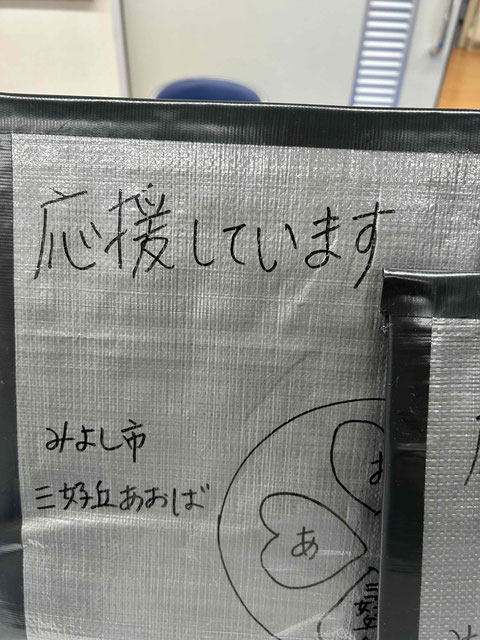 応援しています
みよし市
三好丘あおば
あ